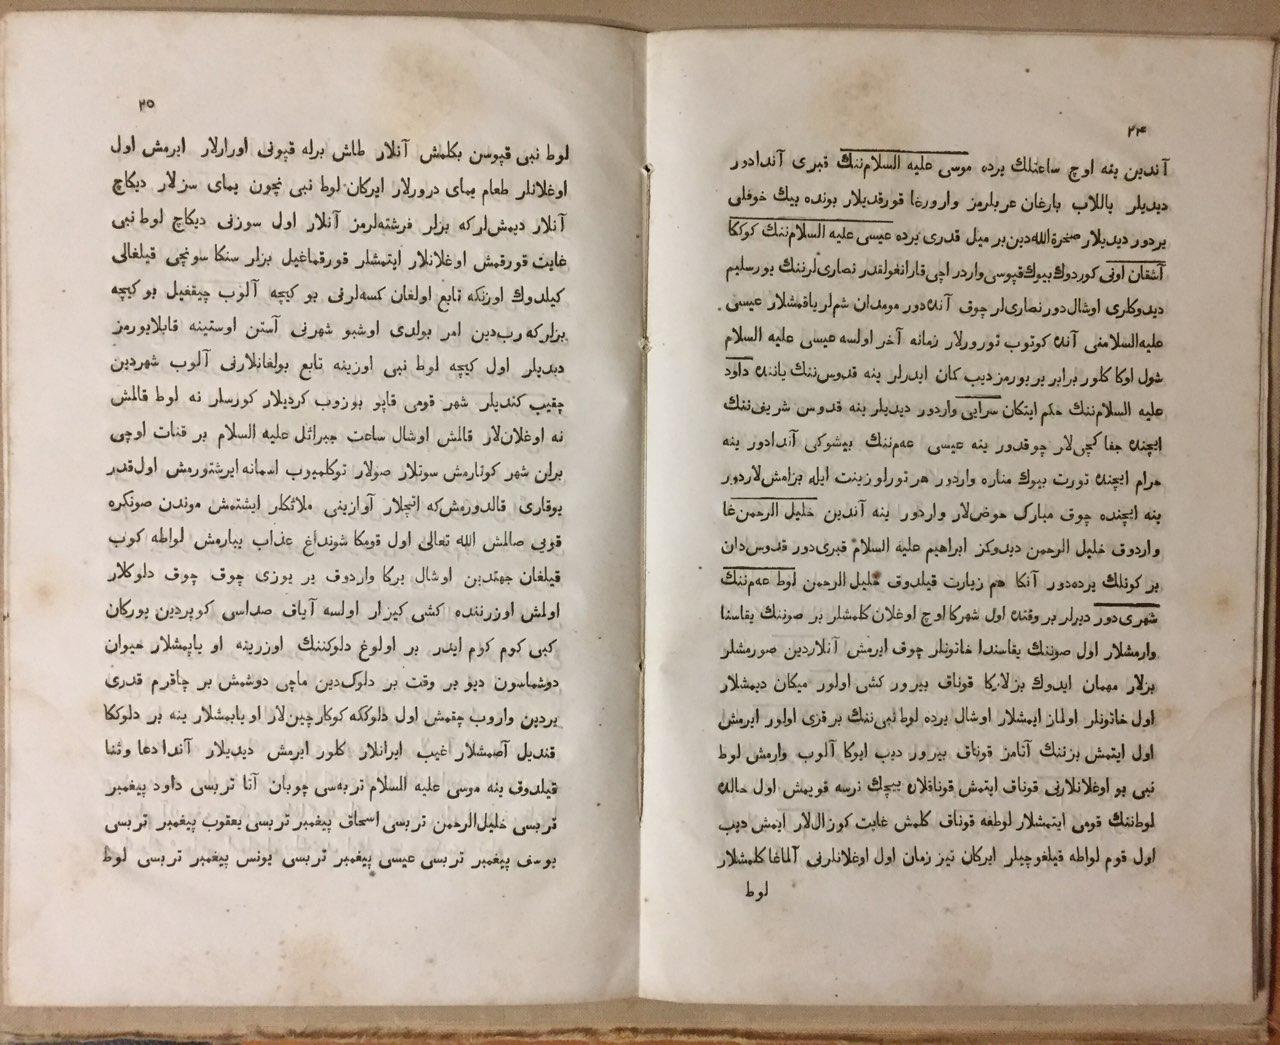 ٢٤
آندین ینه اوچ ساعتلك یرده موسی علیه السلام‌ننك قبری آندادور
دیدیلر یاللاب بارغان عربلرمز وارورغا قورقدیلار بونده بیك خوفلی
یردور دیدیلار صخرة‌الله‌دین بر میل قدری یرده عیسی علیه السلام‌ننك كوككا
آشقان اونی كوردوك بیوك قپوسی واردر اچی قارانغولقدر نصاری‌لرننك یورسلیم
دیدوكلری اوشال دور نصاری‌لر چوق آنده دور مومدان شم‌لر یاقمشلار عیسی
علیه السلامنی آنده كوتوب تورورلار زمانه آخر اولسه عیسی علیه السلام
شول اوكا كلور برابر یریورمز دیب كمان ایدرلر ینه قدوس‌ننك یاننده داود
علیه السلام‌ننك حكم ایتكان سرایی واردور دیدیلر ینه قدوس شریف‌ننك
ایچنده جفا كچی‌لار چوقدور ینه عیسی عه‌م‌ننك بیشوكی آندادور ینه
حرام ایچنده تورت بیوك مناره واردور هر تورلو زینت ایله بزامش‌لاردور
ینه ایچنده چوق مبارك حوض‌لار واردور ینه آندین خلیل الرحمن‌غا
واردوق خلیل الرحمن دیدوكز ابراهیم علیه السلام قبری‌دور قدوس‌دان
بر كونلك یرده‌دور آنكا هم زیارت قیلدوق خلیل الرحمن لوط عه‌م‌ننك
شهری‌دور دیرلر بر وقتده اول شهركا اوچ اوغلان كلمشلر بر صوننك یقاسنا
وارمشلار اول صوننك یقاسندا خاتونلر چوق ایرمش آنلاردین صورمشلر
بزلار مهمان ایدوك بزلاركا قوناق بیرور كشی اولور میكان دیمشلار
اول خاتونلر اولماز ایمشلار اوشال یرده لوط نبی‌ننك بر قزی اولور ایرمش
اول ایتمش بزننك آتامز قوناق بیرور دیب ایوكا آلوب وارمش لوط
نبی بو اوغلانلارنی قوناق ایتمش قوناقلارن ییچك نرسه قویمش اول حالده
لوط‌ننك قومی ایتمشلار لوطغه قوناق كلمش غایت كوزال‌لار ایمش دیب
اول قوم لواطه قیلغوچیلر ایركان تیز زمان اول اوغلانلارنی آلماغا كلمشلار
لوط
٢٥
لوط نبی قپوسن بكلمش آنلار طاش برله قپونی اورارلار ایرمش اول
اوغلانلر طعام یمای درورلار ایركان لوط نبی نچون یمای سزلار دیكاچ
آنلار دیمش‌لر كه بزلر فرشته‌لرمز آنلار اول سوزنی دیكاچ لوط نبی
غایت قورقمش اوغلانلار ایتمشلر قورقماغیل بزلر سنكا سونچی قیلغالی
كیلدوك اوزنكه تابع اولغان كسه‌لرنی بو كیچه آلوب چیقغیل بو كیچه
بزلركه رب‌دین امر بولدی اوشبو شهرنی آستن اوستینه قابلایورمز
دیدیلر اول كیچه لوط نبی اوزینه تابع بولغانلارنی آلوب شهردین
چقیب كتدیلر شهر قومی قاپو بوزوب كردیلار كورسلر نه لوط قالمش
نه اوغلان‌لار قالمش اوشال ساعت جبرائل علیه السلام بر قنات اوچی
برلن شهر كوتارمش سوتلار صولار توكلمیوب اسمانه ایرشتورمش اول‌قدر
یوقاری قالدورمش‌كه اتچلار آوازینی ملائكلر ایشتمش موندن صونكره
قوبی صالمش الله تعالی اول قومكا شونداغ عذاب یبارمش لواطه كوب
قیلغان جهتدین اوشال یركا واردوق یر یوزی چوق چوق دلوكلار
اولمش اوزرننده كشی كیزار اولسه آیاف صداسی كوپردین یوركان
كبی كوم كوم ایدر بر اولوغ دلوكننك اوزرینه او یاپمشلار حیوان
دوشماسون دیو بر وقت بر دلوك‌دین ماچی دوشمش بر چاقرم قدری
یردین واروب چقمش اول دلوككه كوكارچین‌لار او یاپمشلار ینه بر دلوككا
قندیل آصمشلار غیب ایرانلار كلور ایرمش دیدیلار آندا دعا وثنا
قیلدوق ینه موسی علیه السلام تربه‌سی چوبان آتا تربسی داود پیغمبر
تربسی خلیل‌الرحمن تربسی اسحاق پیغمبر تربسی یعقوب پیغمبر تربسی
یوسف پیغمبر تربسی عیسی پیغمبر تربسی یونس پیغمبر تربسی لوط